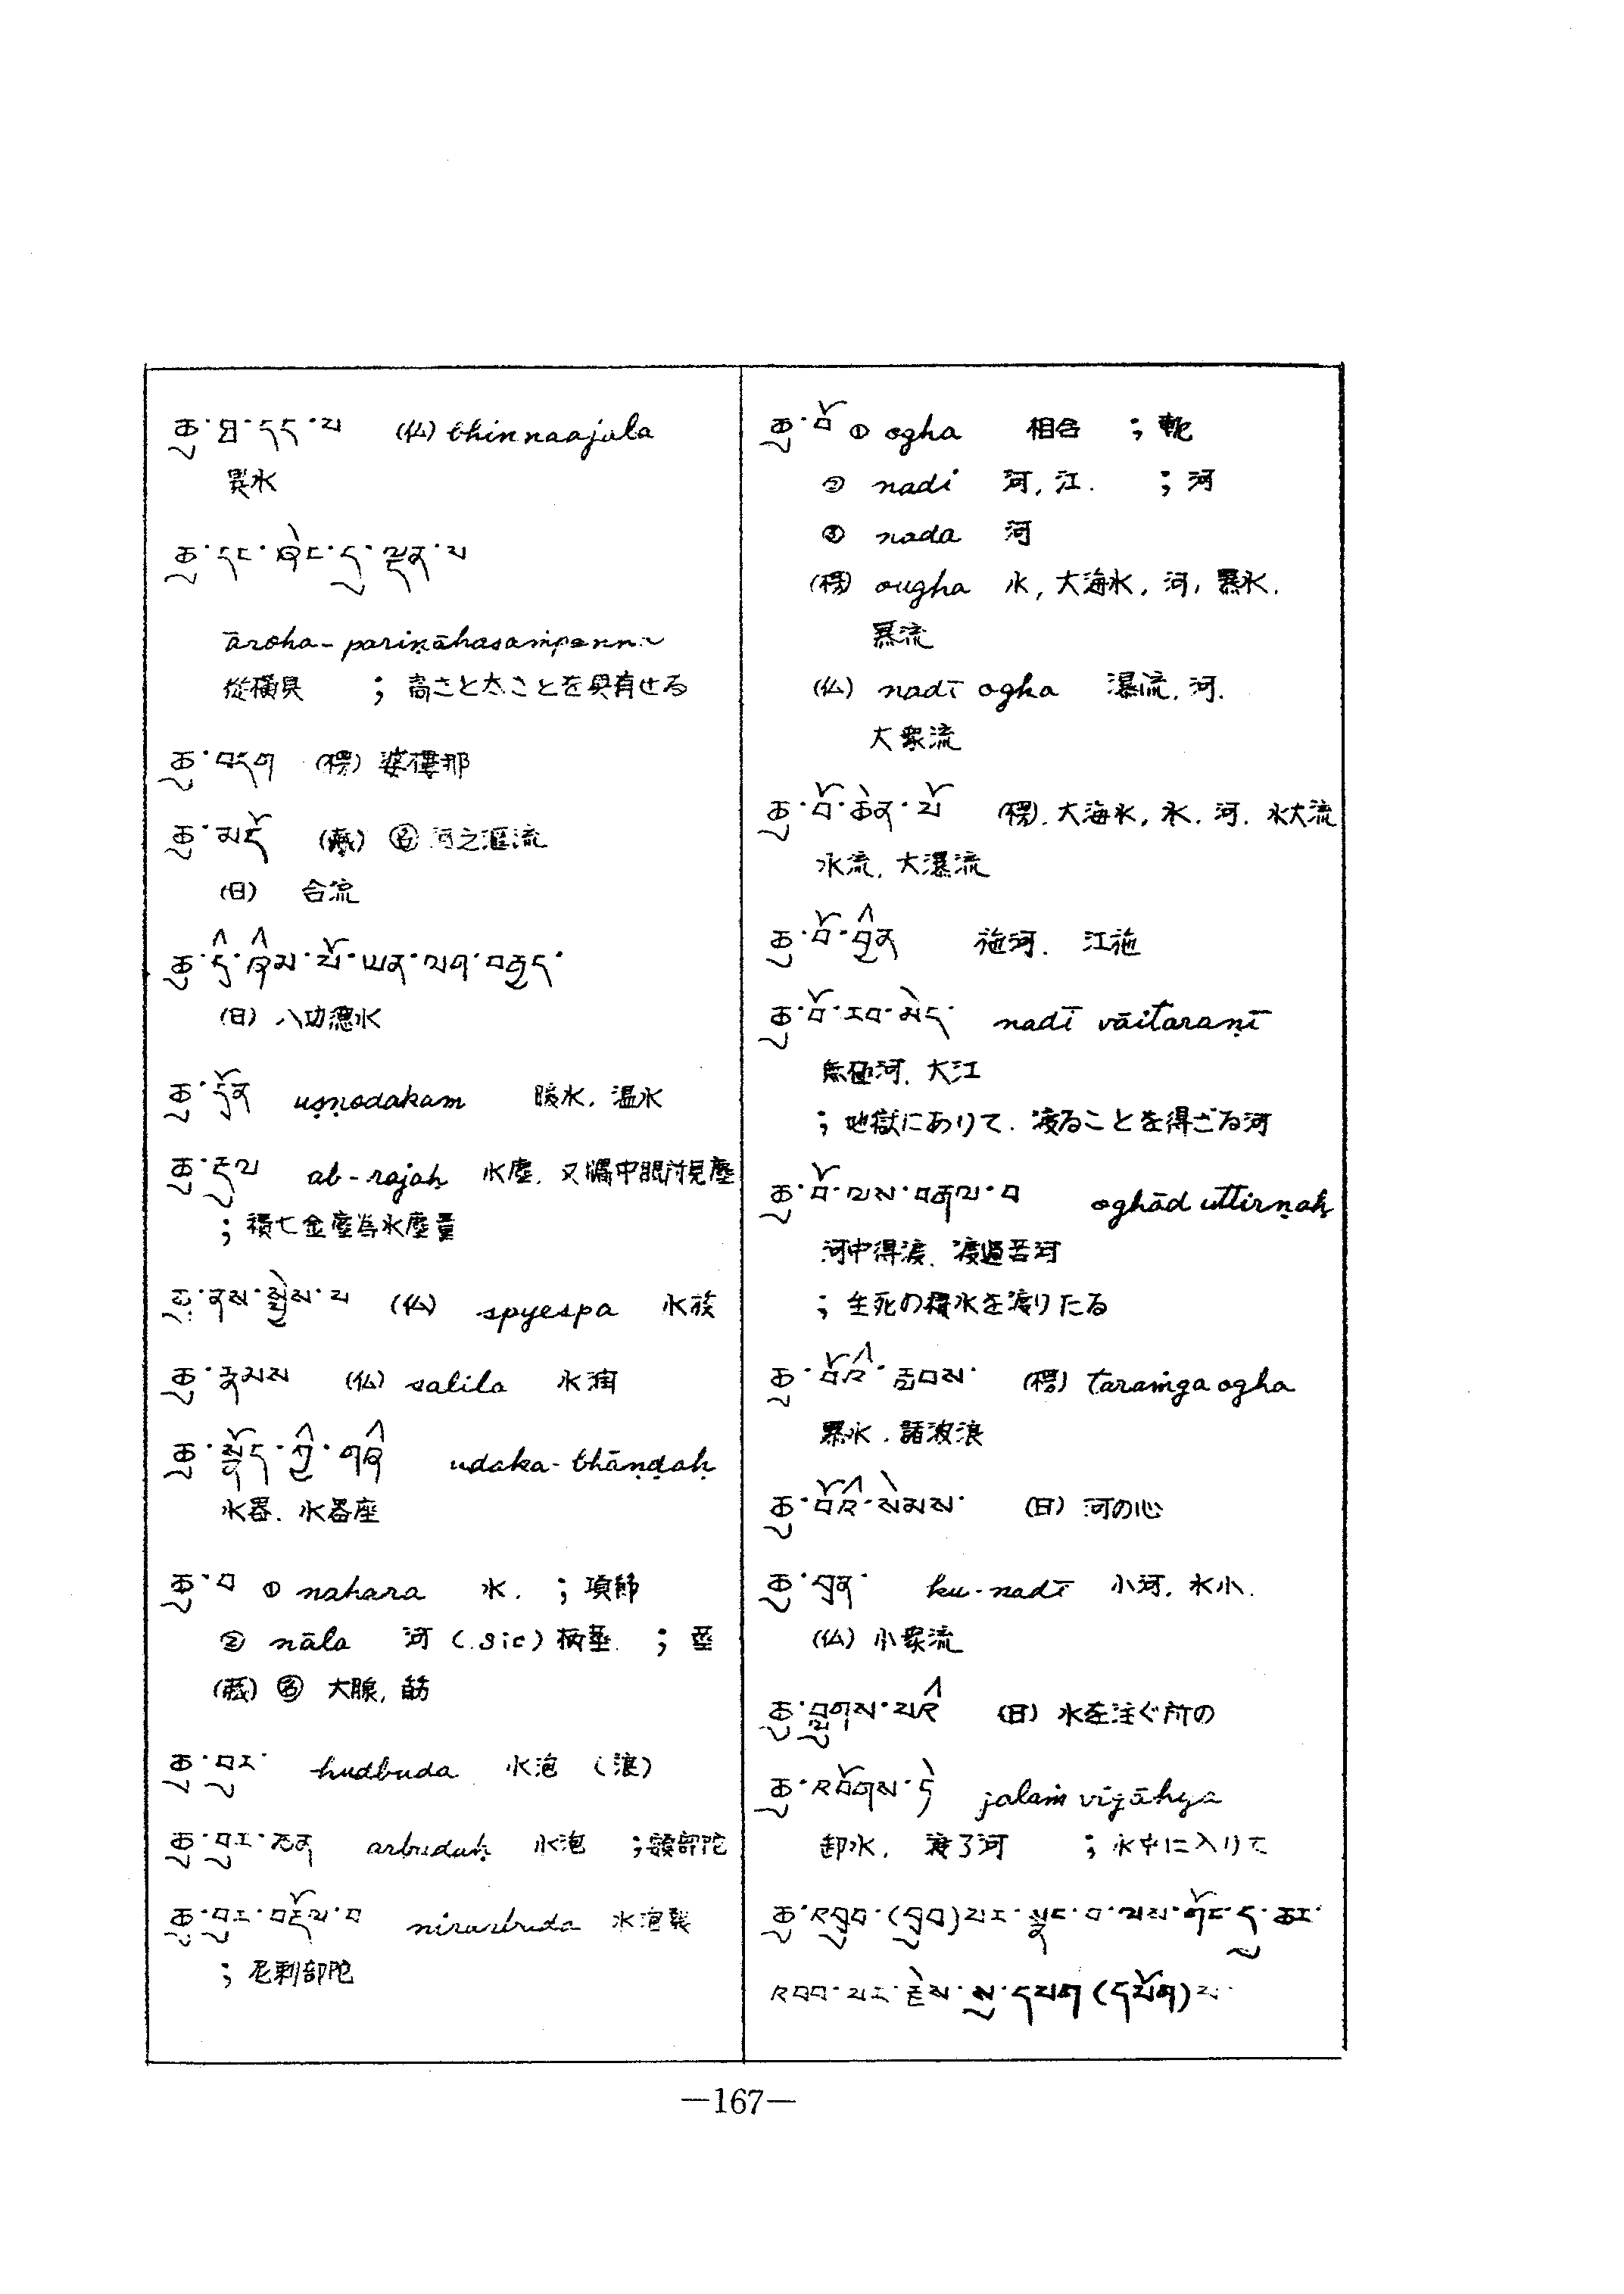 ཆུ་ཐ་དད་པ (仏) bhinnaajala
異水
ཆུ་དང་ཞེང་དུ་ལྡན་པ
āroha-pariṇāhasaṁpanna
從横具 ; 高さと太さとを具有せる
ཆུ་བདག (楞) 婆樓那
ཆུ་མདོ (蔵) 名 河之滙流
(日) 合流
ཆུ་དྲི་ཞིམ་པོ་ཡན་ལག་བརྒྱད་
(日) 八功德水
ཆུ་དྲོན uṣṇodakam 暖水, 温水
ཆུ་རྡུལ ab-rajaḥ 水塵, 又牖中眼所見塵
; 積七金塵為水塵量
ཆུ་ནས་སྐྱེས་པ (仏) spyespa 水族
ཆུ་རྣམས (仏) salila 水潤
ཆུ་སྣོད་ཀྱི་གཞི udaka-bhāṇḍaḥ
水器, 水器座
ཆུ་བ ① nahara 水. ; 項節
② nāla 河 (.sic) 柄莖. ; 莖
(蔵) 名 大腺, 筋
ཆུ་བུར་ hudbuda 水泡 (浪)
ཆུ་བུར་ཅན arbudaḥ 水泡 ; 頞部陀
ཆུ་བུར་བརྡོལ་བ nirarbuda 水泡裂
; 尼剌部陀
ཆུ་བོ ① ogha 相合 ; 軛
② nadi 河, 江. ; 河
③ nada 河
(楞) ougha 水, 大海水, 河, 暴水,
暴流
(仏) nadī ogha 瀑流, 河,
大衆流
ཆུ་བོ་ཆེན་པོ (楞). 大海水, 水, 河, 水大流
水流, 大瀑流
ཆུ་བོ་བྱིན 施河, 江施
ཆུ་བོ་རབ་མེད་ nadī vāitaraṇī
無極河, 大江
; 地獄にありて, 渡ることを得ざる河
ཆུ་བོ་ལས་བརྒལ་བ oghād uttirṇaḥ
河中得渡, 渡過苦河
; 生死の積水を渡りたる
ཆུ་བོའི་རྦབས་ (楞) taraṁga ogha
暴水, 諸波浪
ཆུ་བོའི་སེམས་ (日) 河の心
ཆུ་ཕྲན་ ku-nadī 小河, 水小.
(仏) 小衆流
ཆུ་བླུགས་པའི (日) 水を注ぐ所の
ཆུ་འབོགས་ཏེ jalaṁ vigāhya
卸水, 渡了河 ; 水中に入りて
ཆུ་འབྲུབ་(བྲུབ)པར་སྣང་བ་ལས་གོང་དུ་ཆར་
འབབ་པར་རྗེས་སུ་དཔག (དཔོག) པ་